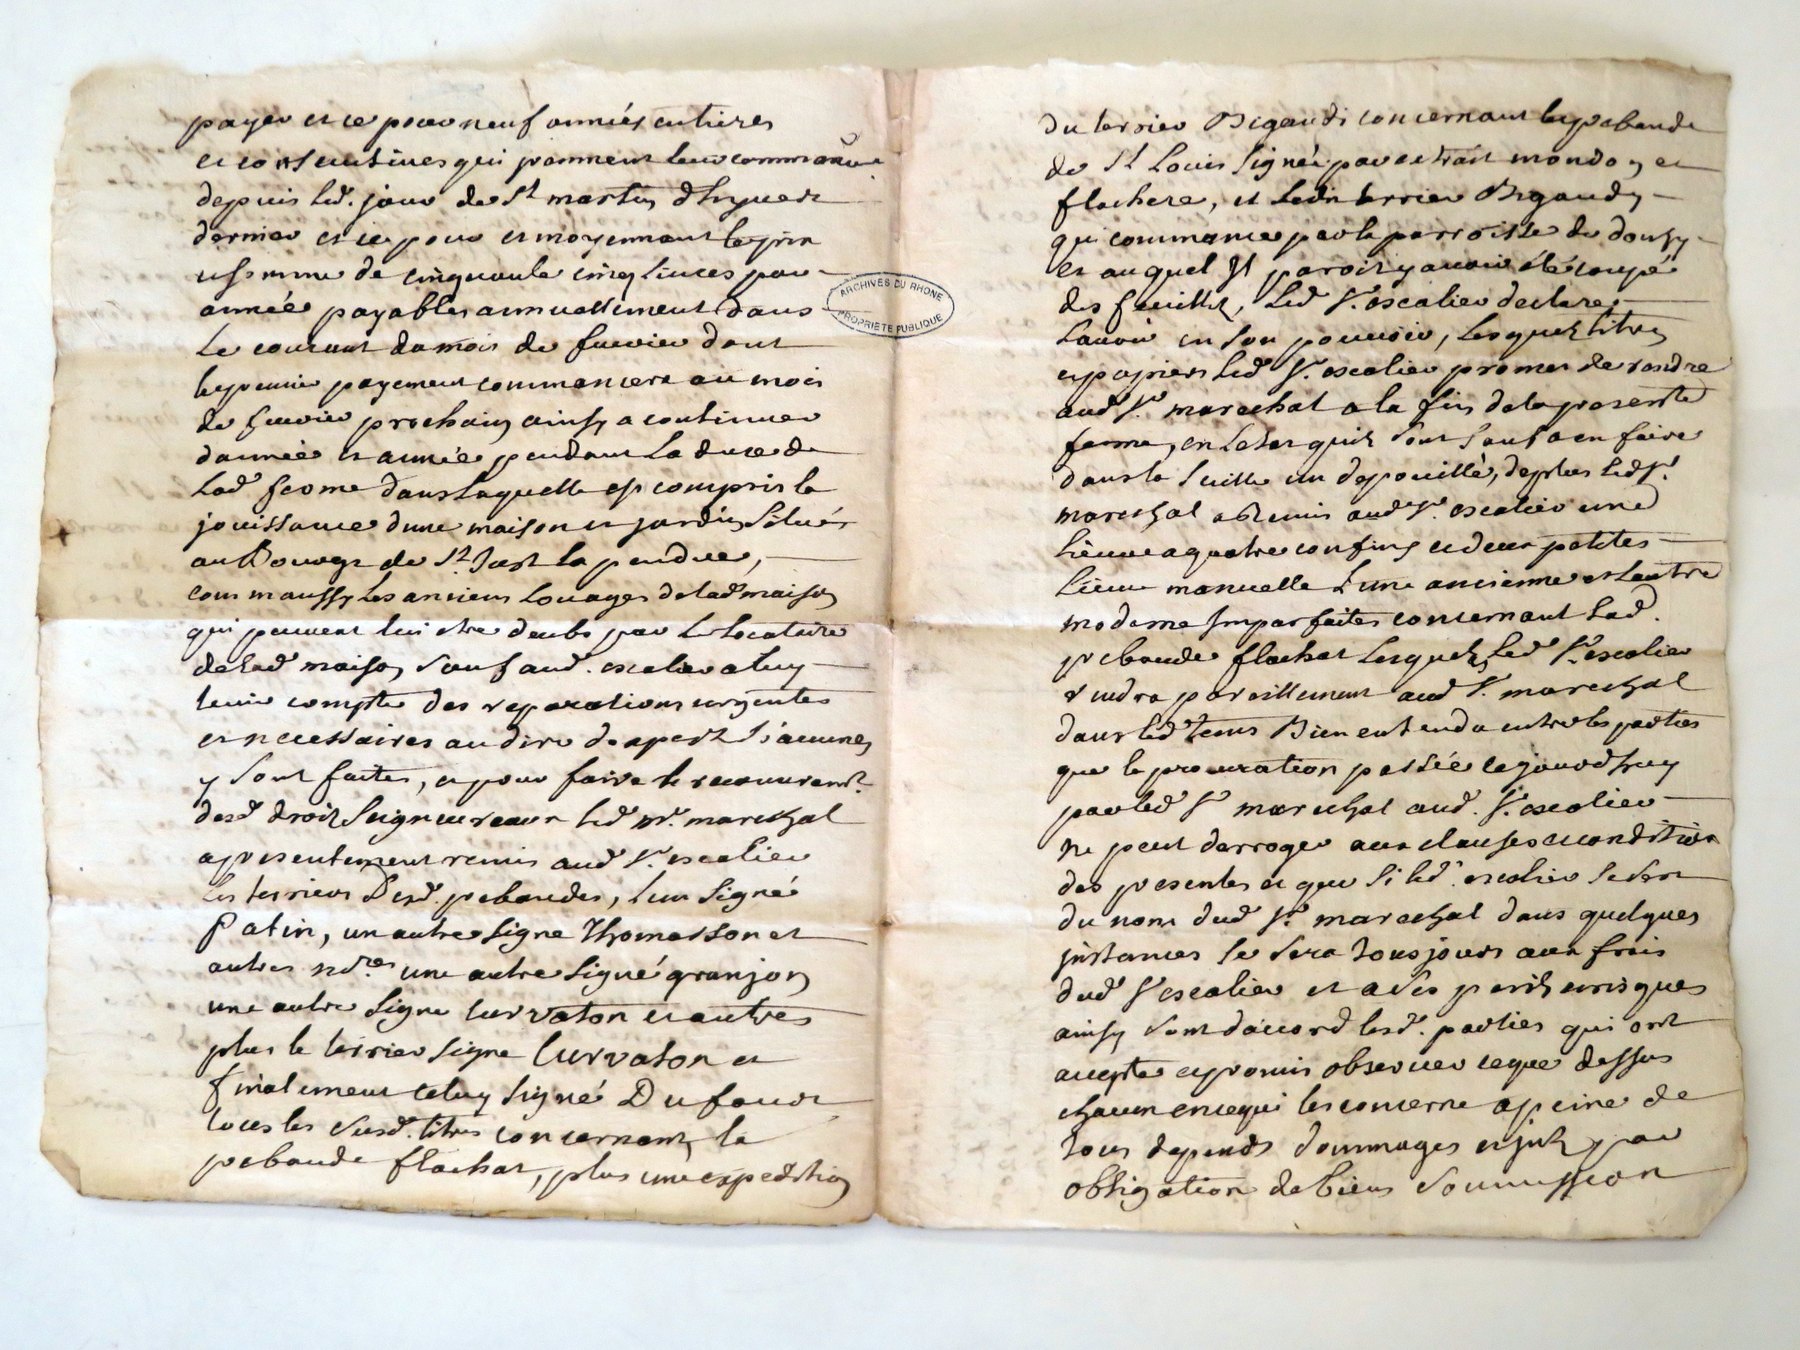 payer et ce pour neuf années entieres
et consecutives qui prennent leur commance
depuis led. jour de St martin d'hyver
dernier et ce pour et moyennant le prix
et somme de cinquante cinq livres par
année payables annuellement dans
le courant du mois de fevrier dont
le premier payement commancera au mois
de fevrier prochain ainsy a continuer
dannée et année pendant la duree de
lad ferme dans laquelle est compris la
jouissance dune maison et jardin situés
au Bourg de St Just la pendue,
comm aussy les anciens louages de lad maison
qui peuvent luis etre deubs par le locataire
de lad maison sauf aud. escalier a luy
tenir compte des reparations urgentes
et necessaires au dire dexpert si aucunes
y sont faites, et pour faire le recouvremt.
desd droits seigneureaux led sr. mareschal
a presentement remis aud Sr. escalier
les terriers desd. prebandes, lun signé
Patin, un autre signe Thomasson et
autres ndres une autre signé granjon
une autre signe curvaton et autres
plus le terrier signe Curvaton et
finalement celuy signé Dufour
tous les susd. titres concernants la
prebande flachat, plus une expedition
ARCHIVES DU RHONE
PROPRIETE PUBLIQUE
du terrier Bigaudi concernant la prebande
de St Louis signée par extrait mondon et
flachere, et ledit terrier Bigaudy
qui commance par la parroisse de donzy
et au quel Il paroit y avoir été coupé
des feuillets, led Sr. escalier declare
lavoir en son pouvoir, lesquels titres
et papiers led Sr. escalier promet de rendre
aud Sr. marechal a la fin de la presente
ferme, en letat quils sont sauf a en faire
dans la suitte un depouillé, de plus led Sr.
mareschal a remis aud Sr. escalier une
lieuve a quatre confins et deux petites
lieuve manuelle lune ancienne et lautre
moderne Imparfaites concernant lad.
prebande flachat lesquels led Sr. escalier
rendra pareillement aud Sr. mareschal
dans led tems Bien entendu entre les parties
que la procuration passée cejourdhuy
par led Sr mareschal aud. Sr. escalier
ne peut derroger aux clauses et condition
des presentes et que si led. escalier se sert
du nom dud Sr. mareschal dans quelques
jnstances ce sera tousjours aux frais
dud Sr escalier et a ses perils et risques
ainsy sont daccord lesd. parties qui ont
accepte et promis observer ce que dessus
chacun en ce qui les concerne a peine de
tous depends dommages et jnts par
obligation de biens soumission